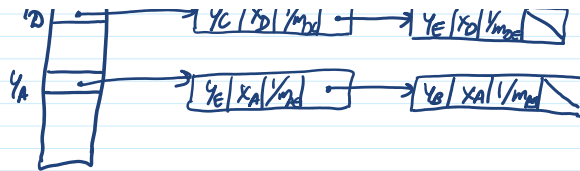 'D y_C | x_D | 1/m_DC y_E | x_D | 1/m_DE
y_A y_E | x_A | 1/m_AE y_B | x_A | 1/m_AB